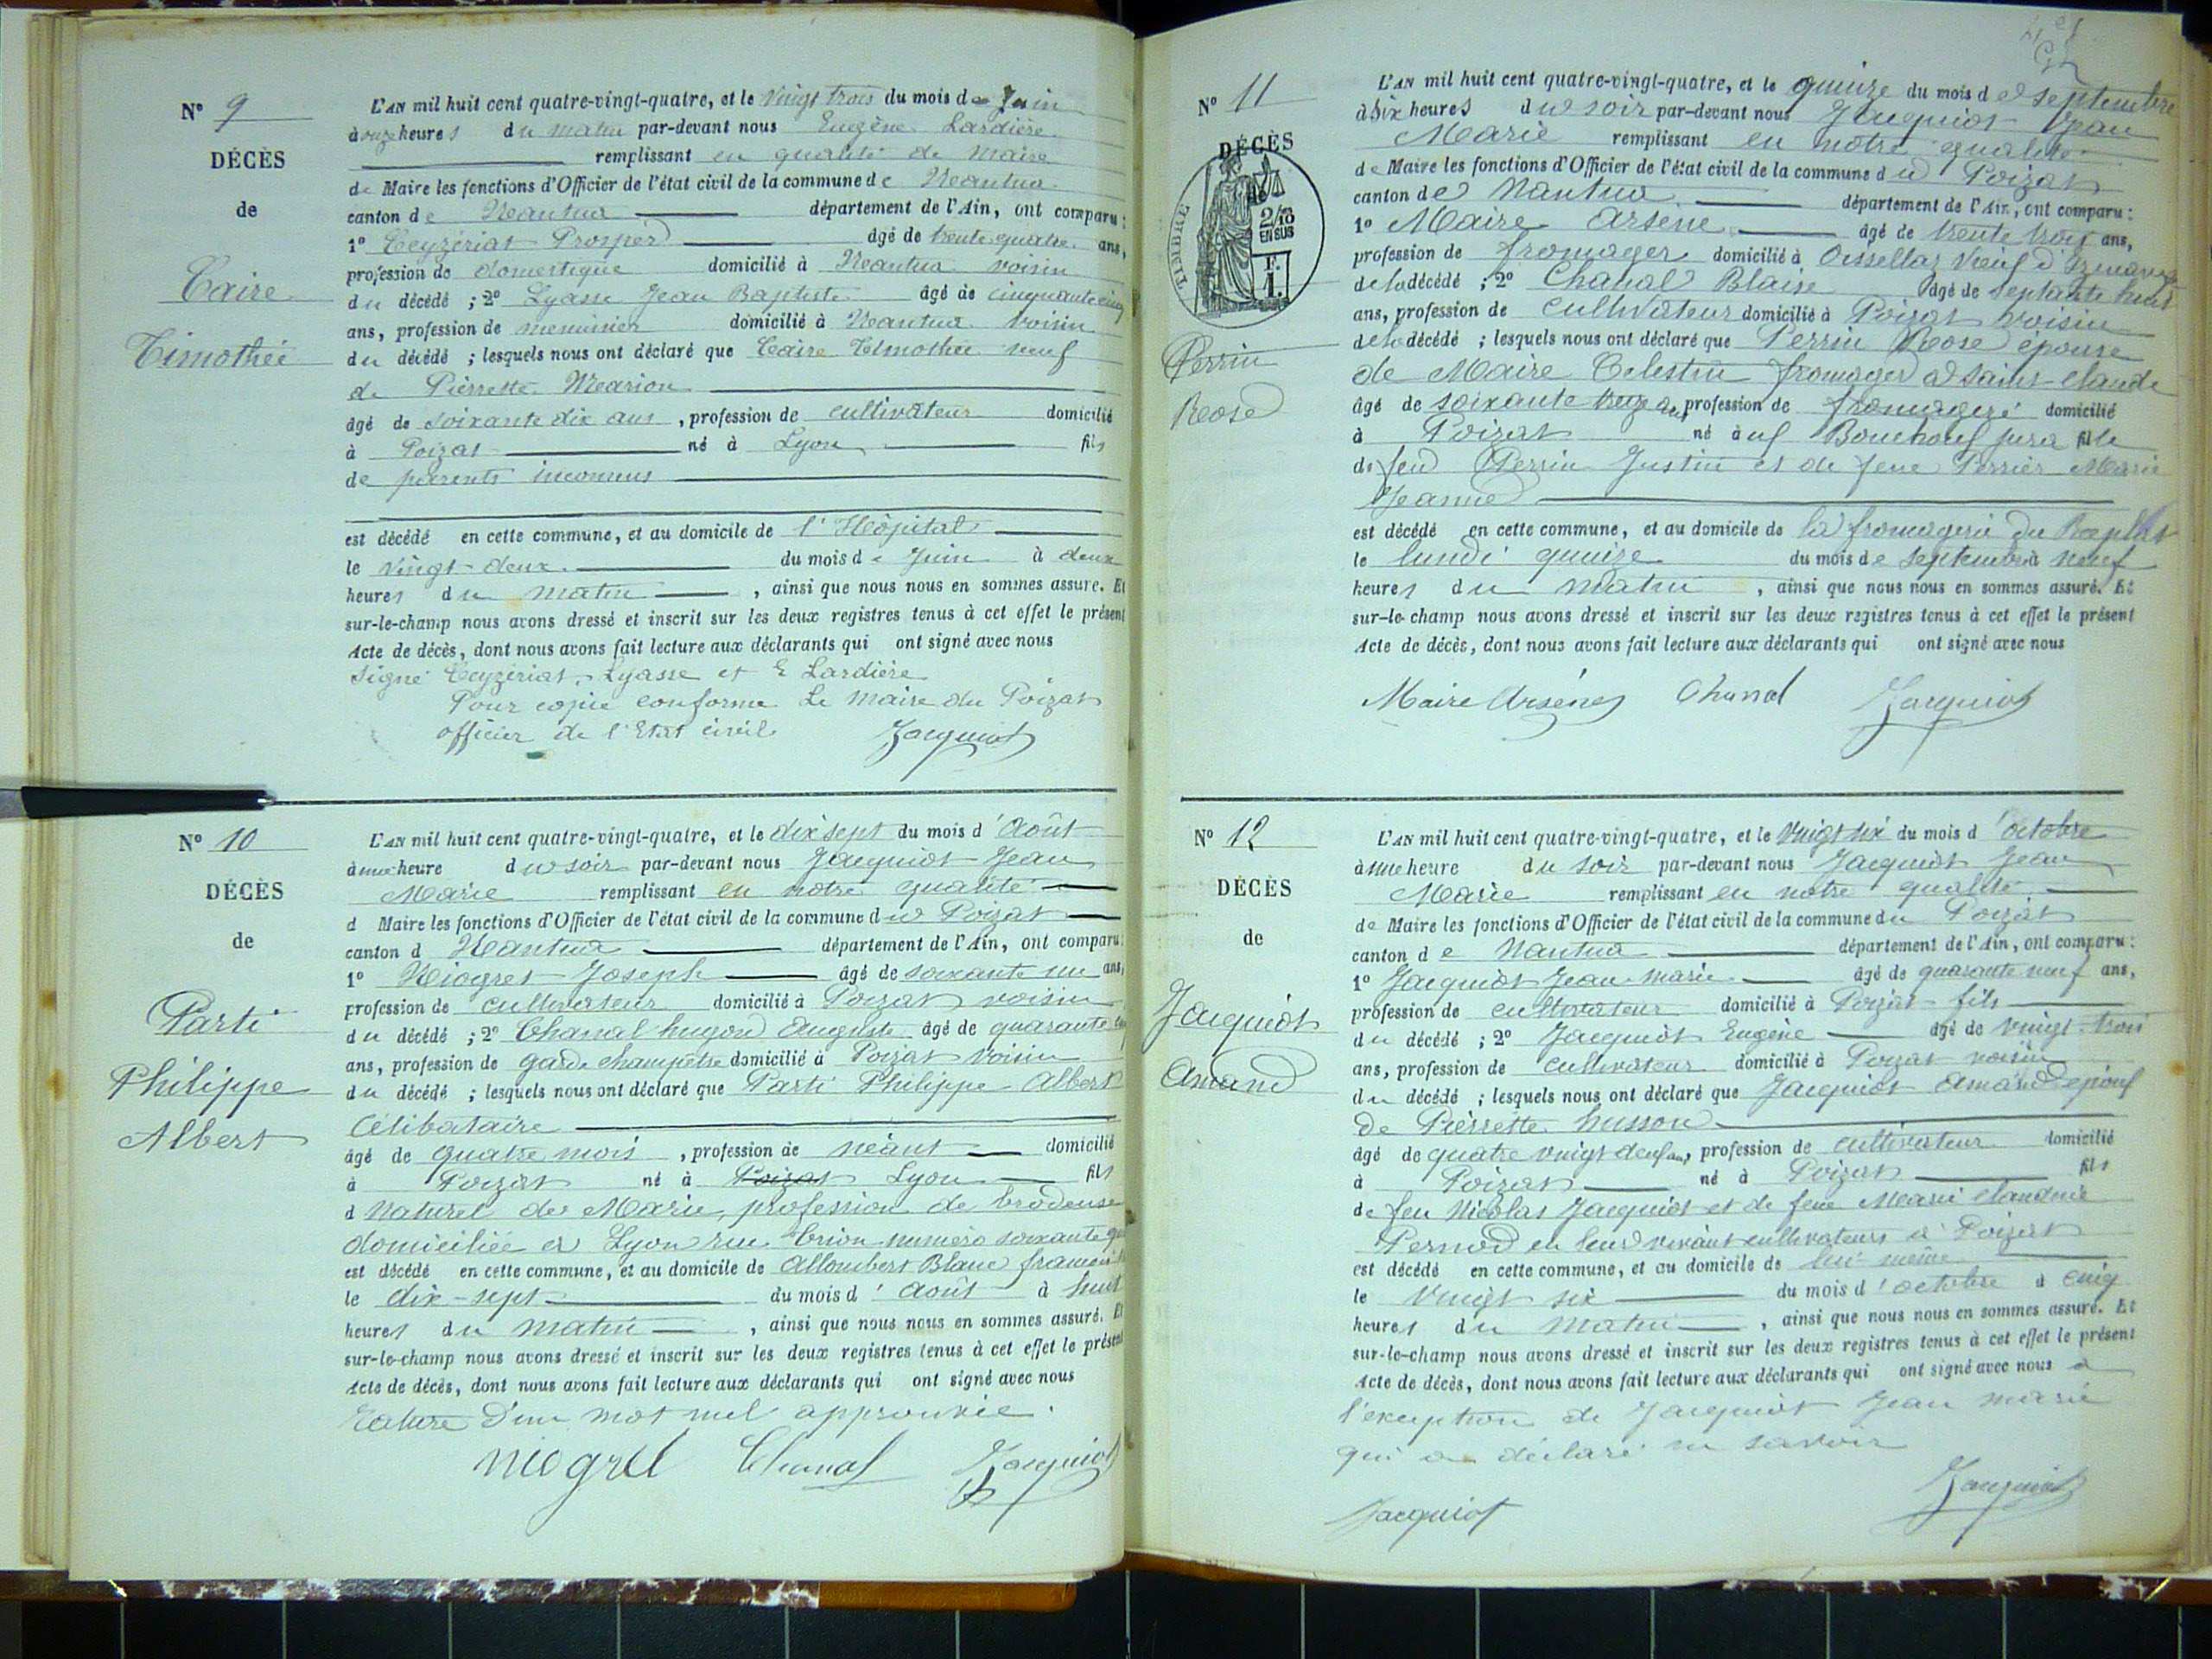 N° 9
DÉCÈS
de
Caire
Timothée
L'AN mil huit cent quatre-vingt-quatre, et le vingt trois du mois de Juin
à onze heures du matin par-devant nous Eugène Lardière
remplissant en qualité de Maire
de Maire les fonctions d'Officier de l'état civil de la commune de Nantua
canton de Nantua département de l'Ain, ont comparu :
1° Ceyzériat Prosper âgé de trente quatre ans,
profession de domestique domicilié à Nantua voisin
du décédé ; 2° Lyasse Jean Baptiste âgé de cinquante cinq
ans, profession de menuisier domicilié à Nantua voisin
du décédé ; lesquels nous ont déclaré que Caire Timothée veuf
de Pierrette Marion
âgé de soixante dix ans , profession de cultivateur domicilié
à Poizat né à Lyon fils
de parents inconnus
est décédé en cette commune, et au domicile de l'Hôpital
le vingt-deux du mois de Juin à deux
heures du matin , ainsi que nous nous en sommes assuré. Et
sur-le-champ nous avons dressé et inscrit sur les deux registres tenus à cet effet le présent
Acte de décès, dont nous avons fait lecture aux déclarants qui ont signé avec nous
Signé Ceyzériat, Lyasse et E Lardière
Pour copie conforme Le Maire du Poizat
officier de l'Etat civil Jacquiot
N° 10
DÉCÈS
de
Parti
Philippe
Albert
L'AN mil huit cent quatre-vingt-quatre, et le dix sept du mois d'Août
à une heure du soir par-devant nous Jacquiot Jean
Marie remplissant en notre qualité
d Maire les fonctions d'Officier de l'état civil de la commune du Poizat
canton d Nantua département de l'Ain, ont comparu :
1° Niogret Joseph âgé de soixante un ans,
profession de cultivateur domicilié à Poizat voisin
du décédé ; 2° Chanal hugon Auguste âgé de quarante
ans, profession de garde champêtre domicilié à Poizat voisin
du décédé ; lesquels nous ont déclaré que Parti Philippe Albert
Célibataire
âgé de quatre mois , profession de néant domicilié
à Poizat né à Poizat Lyon fils
d Naturel de Marie, profession de brodeuse
domiciliée à Lyon rue numéro soixante
est décédé en cette commune, et au domicile de Allombert Blanc
le dix-sept du mois d'Août à huit
heures du matin , ainsi que nous nous en sommes assuré. Et
sur-le-champ nous avons dressé et inscrit sur les deux registres tenus à cet effet le présent
Acte de décès, dont nous avons fait lecture aux déclarants qui ont signé avec nous
Rature d'un mot nul approuvée.
Niogret Chanal Jacquiot
N° 11
DÉCÈS
TIMBRE
2/10
EN SUS
Perrin
Rose
L'AN mil huit cent quatre-vingt-quatre, et le quinze du mois de septembre
à Six heures du soir par-devant nous Jacquiot Jean
Marie remplissant en notre qualité
de Maire les fonctions d'Officier de l'état civil de la commune du Poizat
canton de Nantua département de l'Ain, ont comparu :
1° Maire Arsène âgé de trente trois ans,
profession de fromager domicilié à
de la décédé ; 2° Chanal Blaise âgé de septante huit
ans, profession de cultivateur domicilié à Poizat voisin
de la décédé ; lesquels nous ont déclaré que Perrin Rose épouse
de Maire Celestin fromager à Saint Claude
âgé de soixante treize ans profession de fromagère domicilié
à Poizat né à Jura fille
de feu Perrin Justin et de feue Perrier Marie
Jeanne
est décédé en cette commune, et au domicile de la fromagerie du
le lundi quinze du mois de septembre à neuf
heures du matin , ainsi que nous nous en sommes assuré. Et
sur-le-champ nous avons dressé et inscrit sur les deux registres tenus à cet effet le présent
Acte de décès, dont nous avons fait lecture aux déclarants qui ont signé avec nous
Maire Arsène Chanal Jacquiot
N° 12
DÉCÈS
de
Jacquiot
Amand
L'AN mil huit cent quatre-vingt-quatre, et le vingt six du mois d'octobre
à une heure du soir par-devant nous Jacquiot Jean
Marie remplissant en notre qualité
de Maire les fonctions d'Officier de l'état civil de la commune du Poizat
canton de Nantua département de l'Ain, ont comparu :
1° Jacquiot Jean-Marie âgé de quarante neuf ans,
profession de cultivateur domicilié à Poizat fils
du décédé ; 2° Jacquiot Eugène âgé de vingt-trois
ans, profession de cultivateur domicilié à Poizat voisin
du décédé ; lesquels nous ont déclaré que Jacquiot Amand époux
de Pierrette husson
âgé de quatre vingt deux ans, profession de cultivateur domicilié
à Poizat né à Poizat fils
de feu Nicolas Jacquiot et de feue Marie Claudine
Pernod en leur vivant cultivateurs à Poizat
est décédé en cette commune, et au domicile de lui-même
le vingt six du mois d'octobre à cinq
heures du matin , ainsi que nous nous en sommes assuré. Et
sur-le-champ nous avons dressé et inscrit sur les deux registres tenus à cet effet le présent
Acte de décès, dont nous avons fait lecture aux déclarants qui ont signé avec nous à
l'exception de Jacquiot Jean Marie
qui a déclaré ne savoir
Jacquiot
Jacquiot